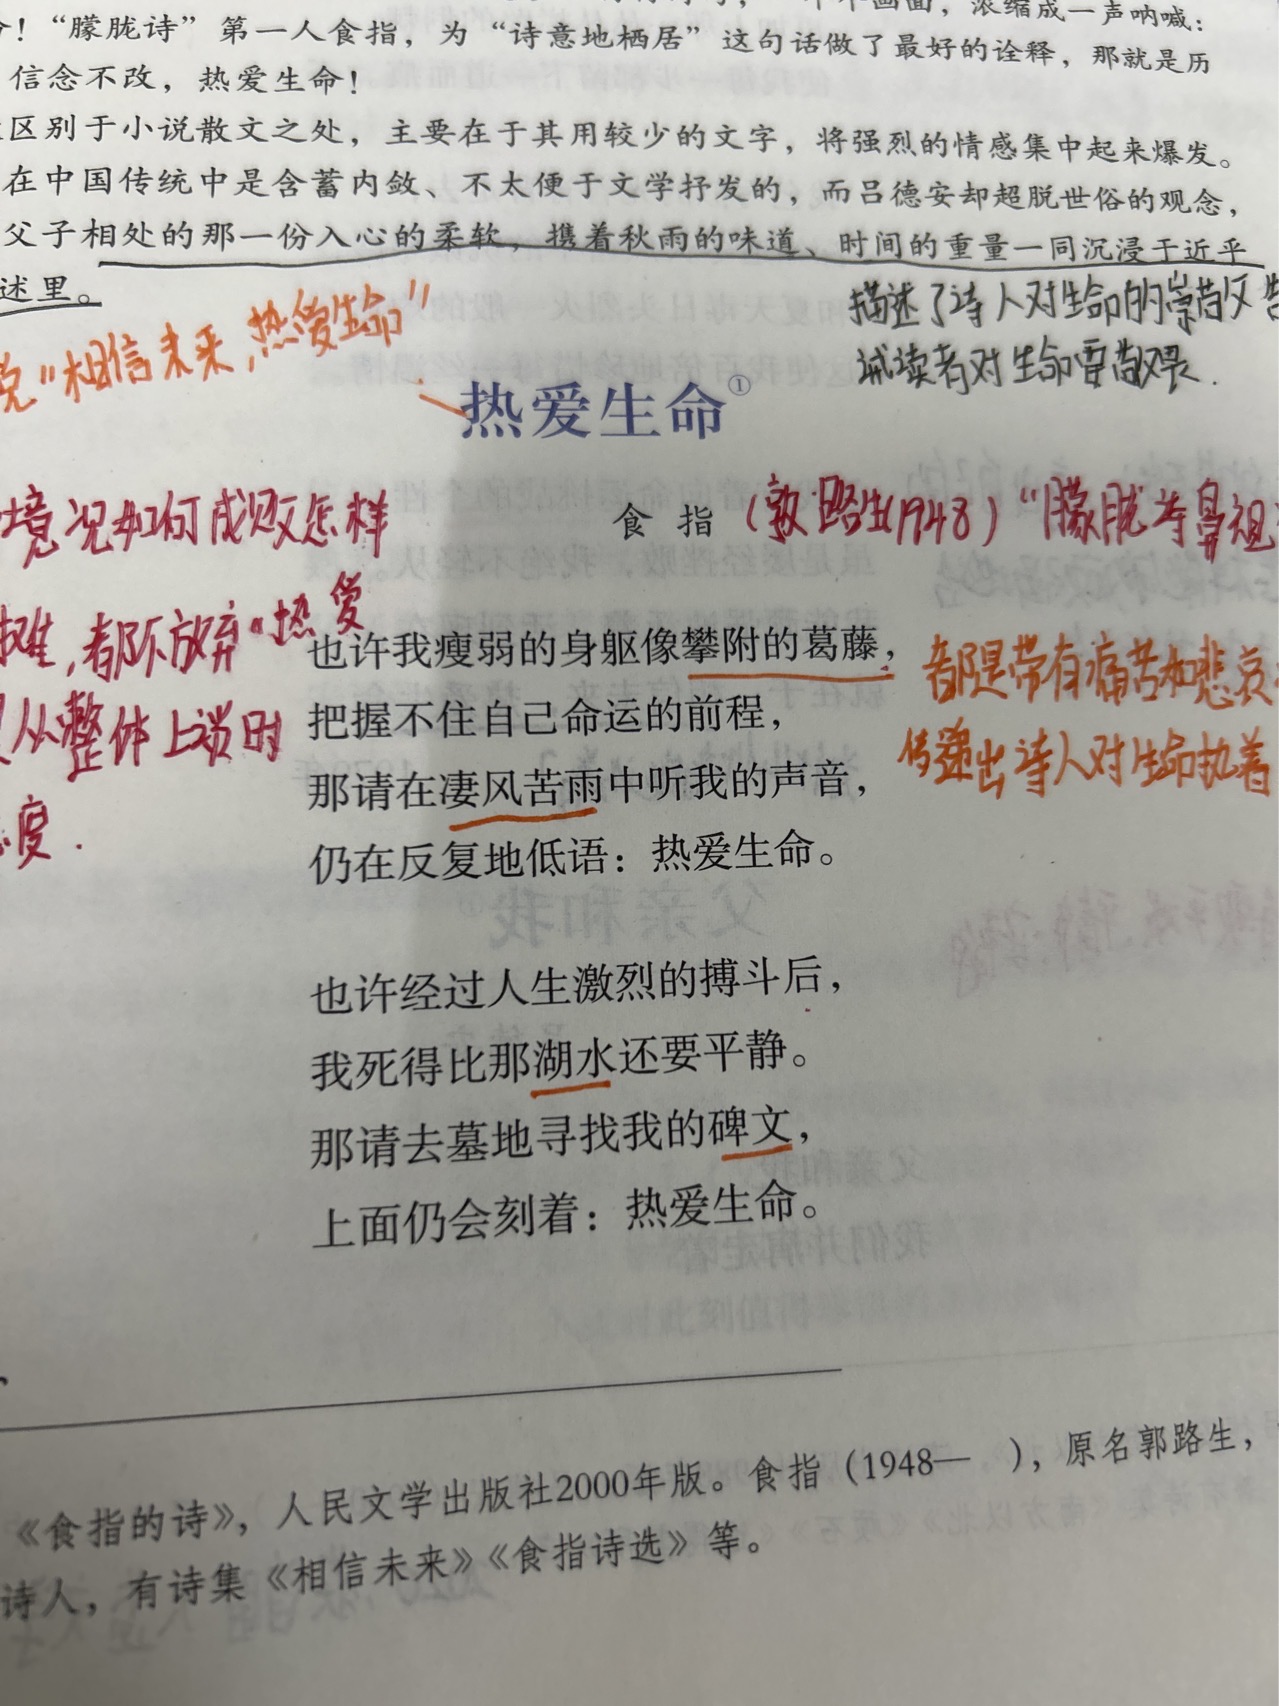 一个个画面，浓缩成一声呐喊：
！“朦胧诗”第一人食指，为“诗意地栖居”这句话做了最好的诠释，那就是历
信念不改，热爱生命！
区别于小说散文之处，主要在于其用较少的文字，将强烈的情感集中起来爆发。
在中国传统中是含蓄内敛、不太便于文学抒发的，而吕德安却超脱世俗的观念，
父子相处的那一份入心的柔软，携着秋雨的味道、时间的重量一同沉浸于近乎
述里。
描述了诗人对生命的崇敬又告
诫读者对生命要敬畏.
"相信未来,热爱生命"
热爱生命①
境况如何成败怎样
食 指
路生(1948) "朦胧诗鼻祖
都不放弃"热爱
从整体上说时
度.
也许我瘦弱的身躯像攀附的葛藤，
把握不住自己命运的前程，
那请在凄风苦雨中听我的声音，
仍在反复地低语：热爱生命。
都是带有痛苦和悲哀
传递出诗人对生命执着
也许经过人生激烈的搏斗后，
我死得比那湖水还要平静。
那请去墓地寻找我的碑文，
上面仍会刻着：热爱生命。
《食指的诗》，人民文学出版社2000年版。食指（1948— ），原名郭路生，
诗人，有诗集《相信未来》《食指诗选》等。